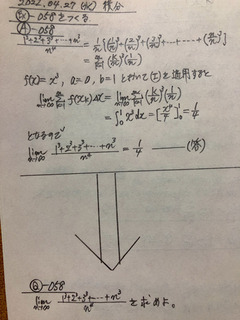 2022.04.27(火) 積分
Ex-058をつくる
(A)-058
(1³+2³+3³+…+n³)/n⁴ = 1/n{(1/n)³+(2/n)³+(3/n)³+……+(n/n)³}
= Σ[k=1→n](k/n)³(1/n)
f(x)=x³, a=0, b=1 とおいて(I)を適用すると
lim[n→∞] Σ[k=1→n] f(xk)Δx = lim[n→∞] Σ[k=1→n](k/n)³(1/n)
= ∫₀¹x³dx = [x⁴/4]₀¹ = 1/4
となるので
lim[n→∞] (1³+2³+3³+…+n³)/n⁴ = 1/4 ——(答)
(Q)-058
lim[n→∞] (1³+2³+3³+…+n³)/n⁴ を求めよ。